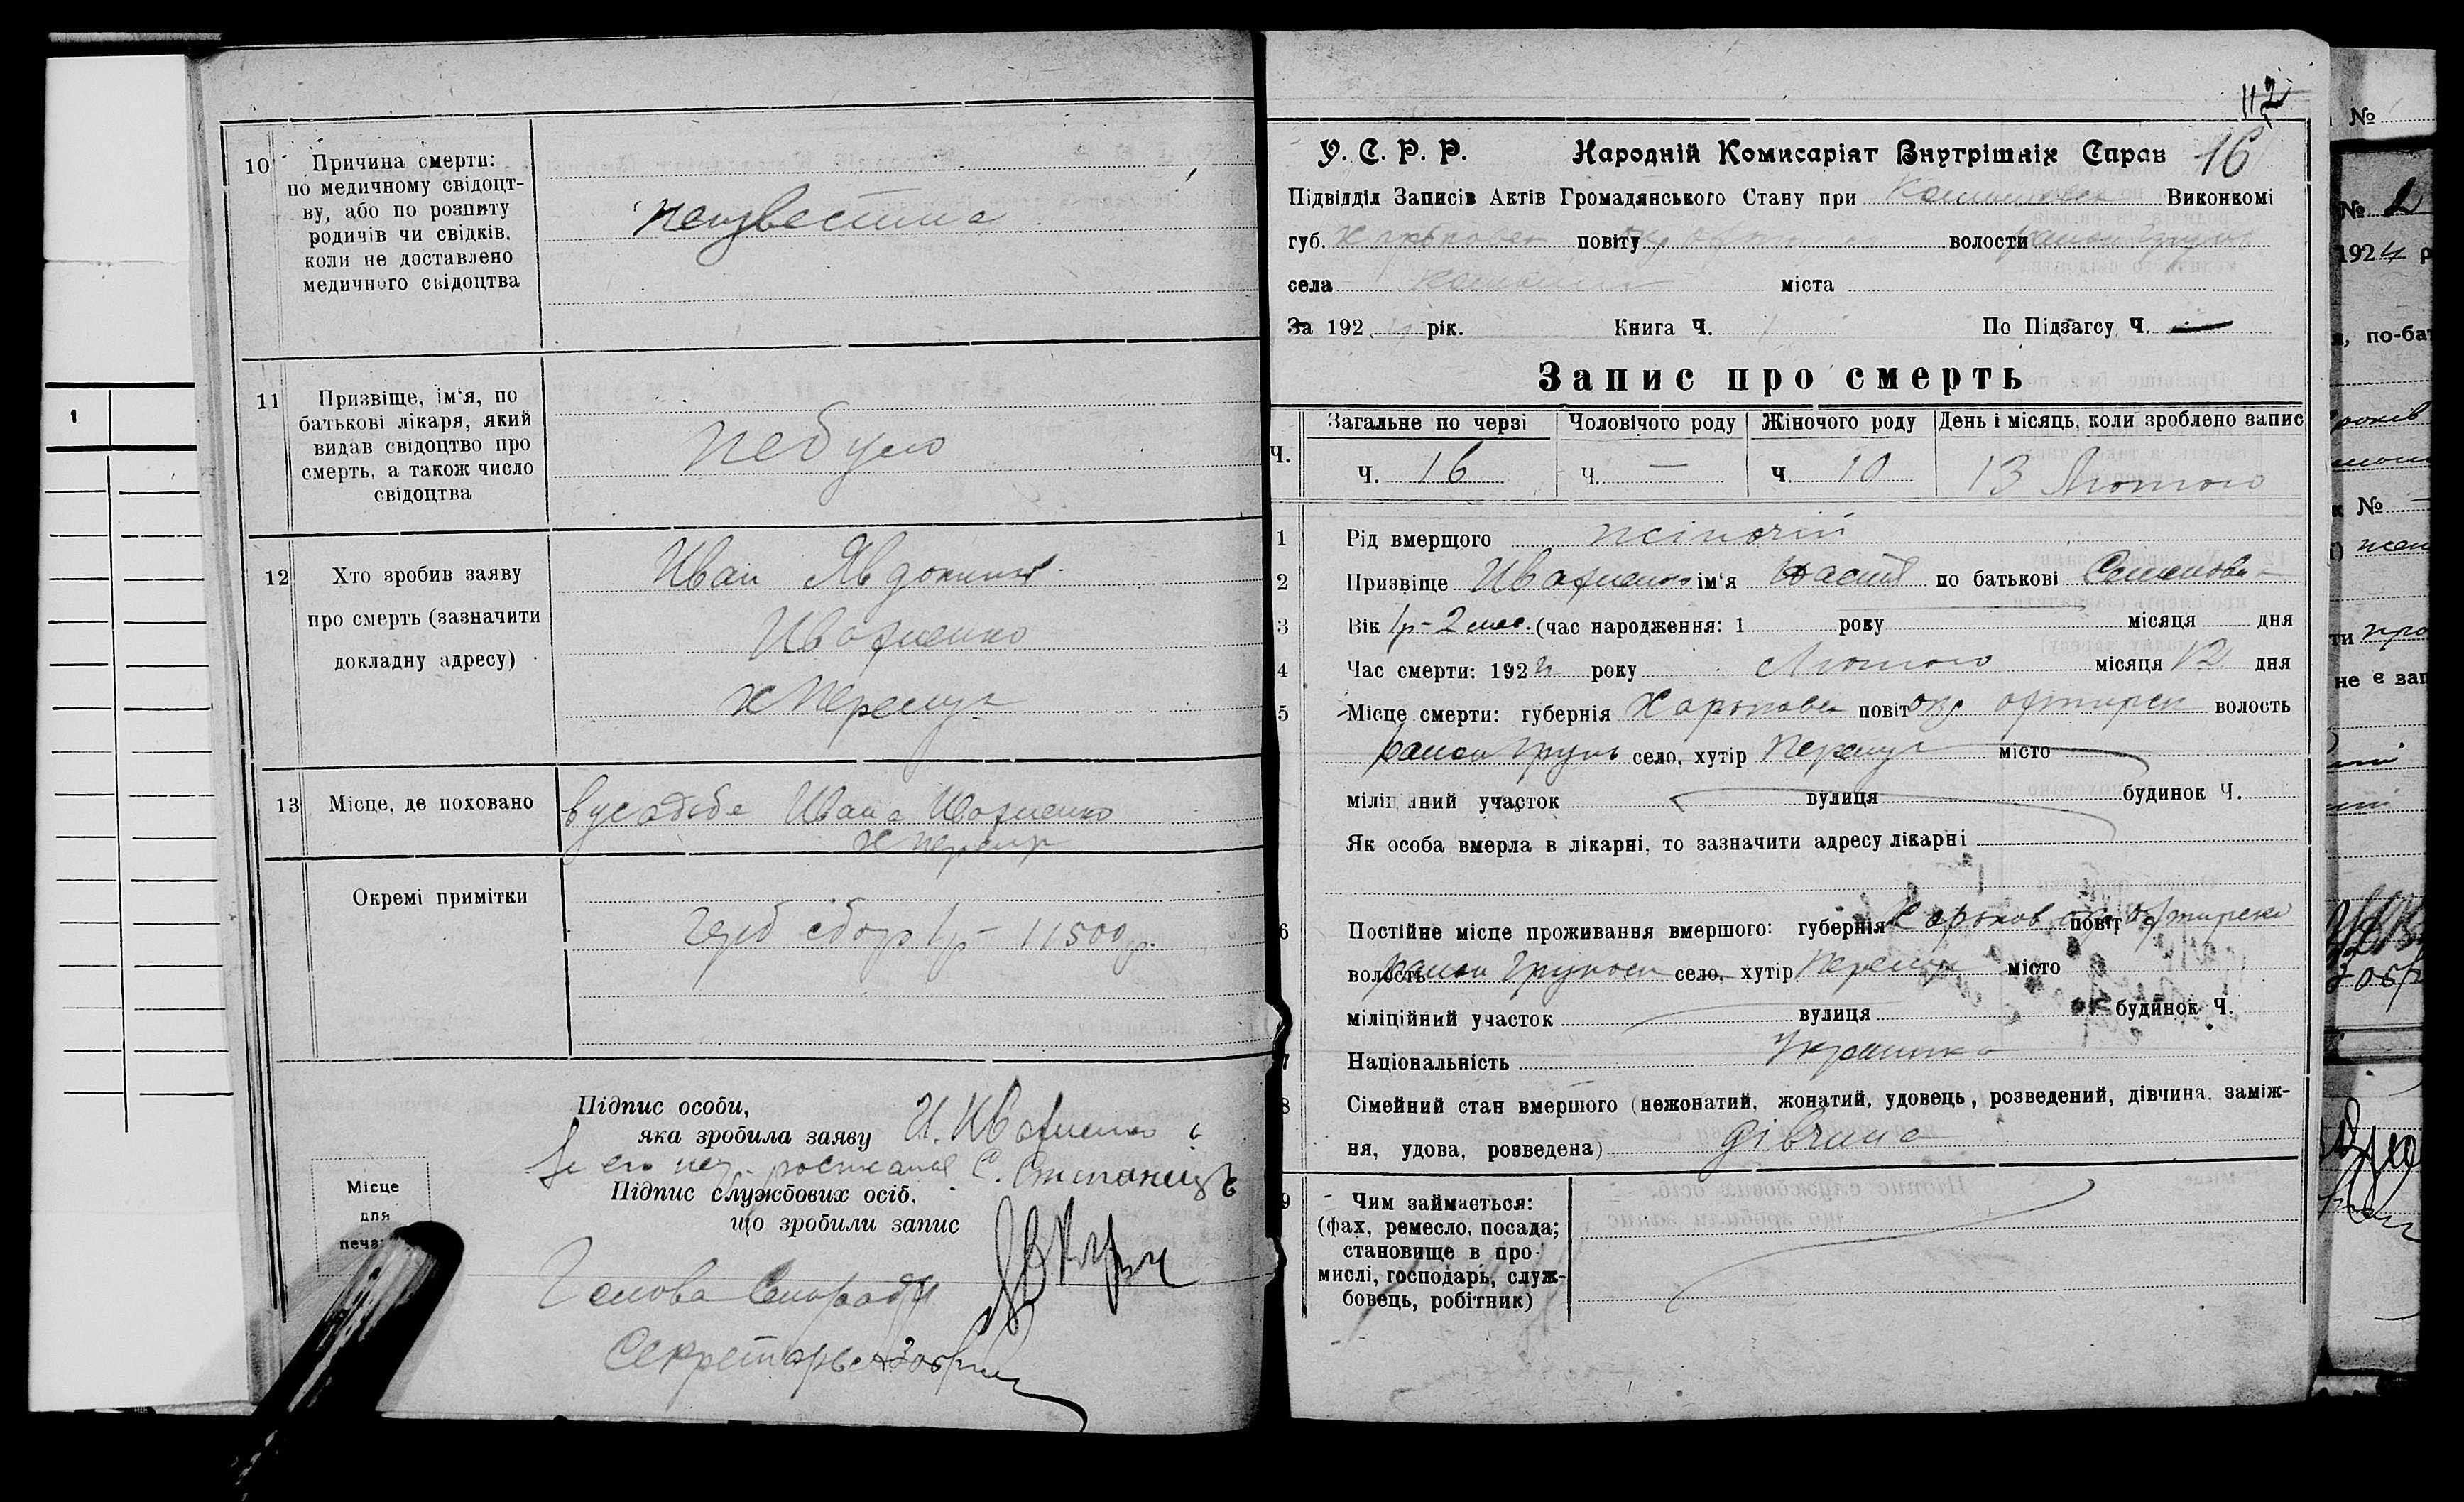 10 Причина смерти:
по медичному свідоцт-
ву, або по розпиту
родичів чи свідків,
коли не доставлено
медичного свідоцтва
неизвестна
11 Призвіще, ім'я, по
батькові лікаря, який
видав свідоцтво про
смерть, а також число
свідоцтва
не було
12 Хто зробив заяву
про смерть (зазначити
докладну адресу)
Иван
Ивахненко
13 Місце, де поховано
в усадьбе Ивана Ивахненко
Окремі примітки
герб сбор 1р – 11500р.
Підпис особи,
яка зробила заяву И. Ивахненко
Підпис службових осіб,
що зробили запис
Місце
для
печат
Голова
Секретарь
112
У. С. Р. Р. Народній Комисаріят Внутрішніх Справ 16
Підвідділ Записів Актів Громадянського Стану при Виконкомі
губ. Харьковск повіту волости
села міста
За 192 рік. Книга Ч. По Підзагсу Ч. —
Запис про смерть
Загальне по черзі Чоловічого роду Жіночого роду День і місяць, коли зроблено запис
Ч. Ч. 16 Ч. — Ч. 10 13 Лютого
1 Рід вмерщого жіночій
2 Призвіще Ивахненко ім'я по батькові Семеновн
3 Вік 1р – 2 мес. (час народження: 1 року місяця дня
4 Час смерти: 1924 року Лютого місяця 12 дня
5 Місце смерти: губернія Харьковск повіт окр охтирск волость
район Грунь село, хутір місто
міліційний участок вулиця будинок Ч.
Як особа вмерла в лікарні, то зазначити адресу лікарні
6 Постійне місце проживання вмершого: губернія Харьков окр повіт охтирск
волость район Грунськ село, хутір місто
міліційний участок вулиця будинок Ч.
7 Національність Украинка
8 Сімейний стан вмершого (нежонатий, жонатий, удовець, розведений, дівчина, заміж-
ня, удова, розведена) дівчина
9 Чим займається:
(фах, ремесло, посада;
становище в про-
мислі, господарь, служ-
бовець, робітник)
№
№ 2
1924 р
по-бат
№
не є зап
1